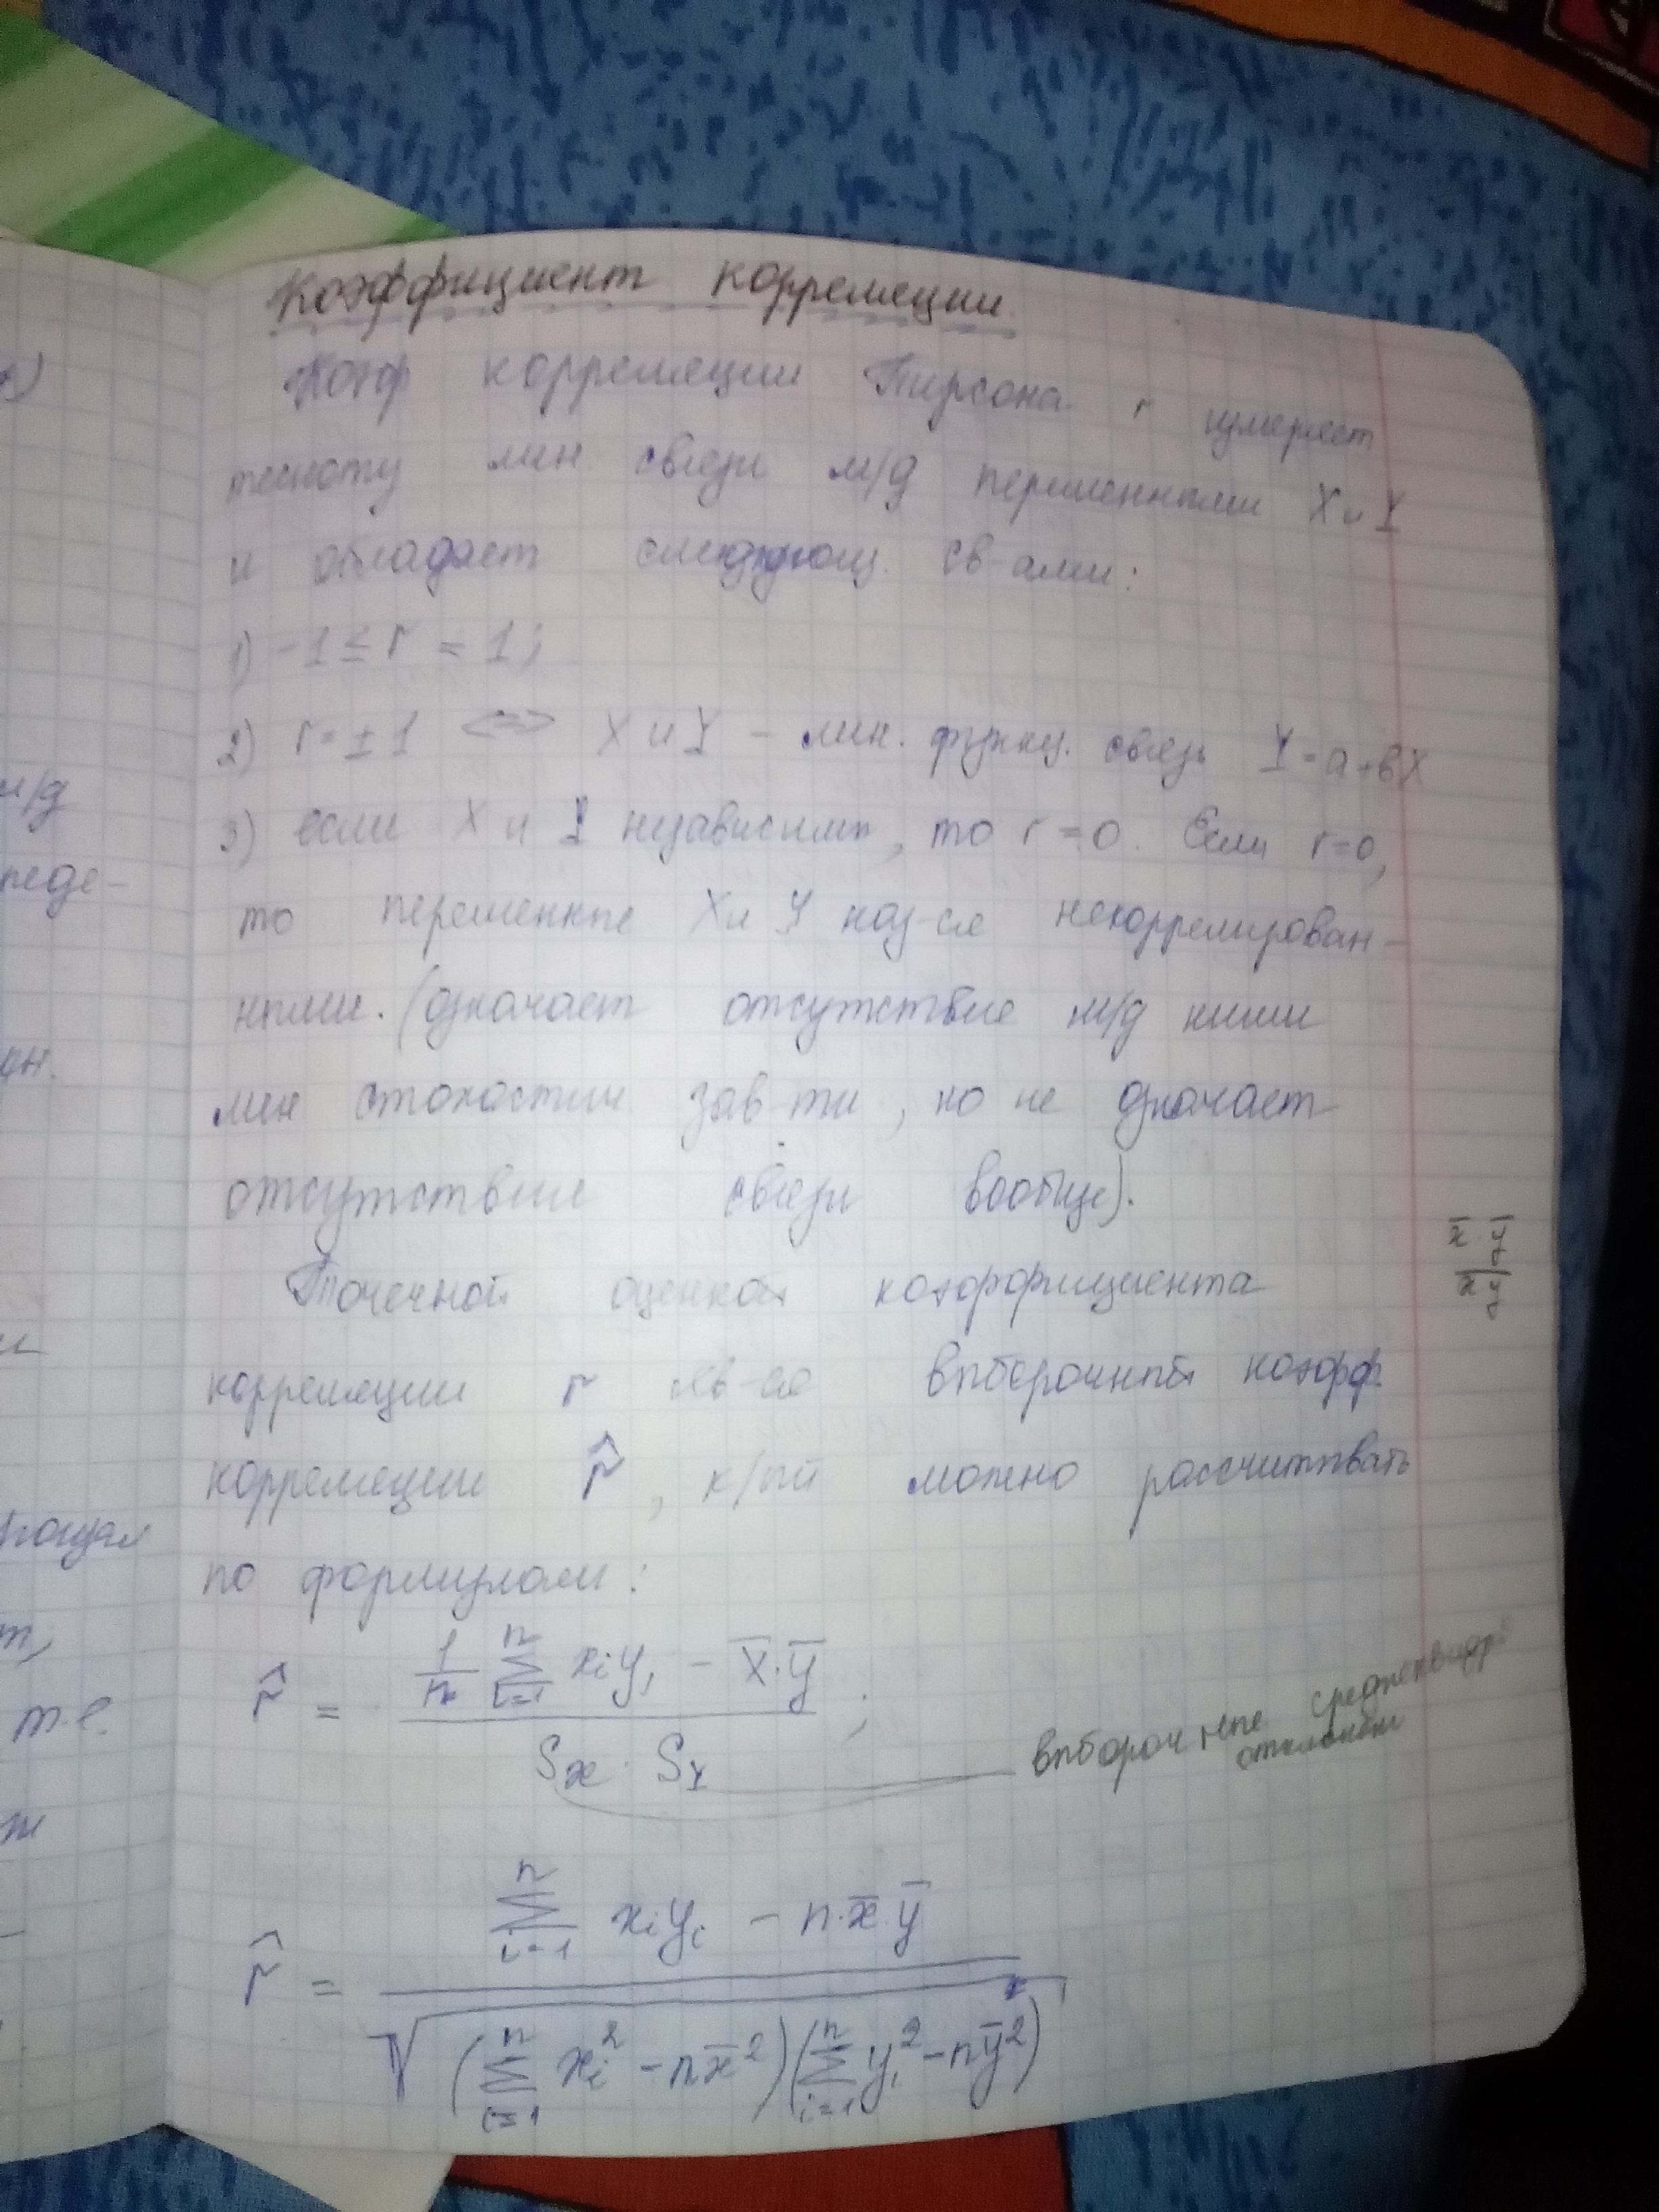 Коэффициент корреляции.
Коэф корреляции Пирсона r измеряет
тесноту лин. связи м/д переменными X и Y
и обладает следующ. св-ами:
1) -1 ≤ r = 1;
2) r = ±1 <=> X и Y - лин. функц. связь Y = a + bX
3) если X и Y независимы, то r = 0. Если r = 0,
то переменные X и Y наз-ся некоррелирован-
ными. (означает отсутствие м/д ними
лин стохастич зав-ти, но не означает
отсутствие связи вообще).
Точечной оценкой коэффициента
корреляции r яв-ся выборочный коэфф
корреляции r̂, к/ый можно рассчитывать
по формулам:
r̂ = (1/n ∑ⁿᵢ₌₁ xᵢyᵢ - x̅·y̅) / (Sx · Sy);
выборочные среднеквадр
отклонения
r̂ = (∑ⁿᵢ₌₁ xᵢyᵢ - n·x̅·y̅) / √((∑ⁿᵢ₌₁ xᵢ² - nx̅²)(∑ⁿᵢ₌₁ yᵢ² - ny̅²))
м/д
т.е.